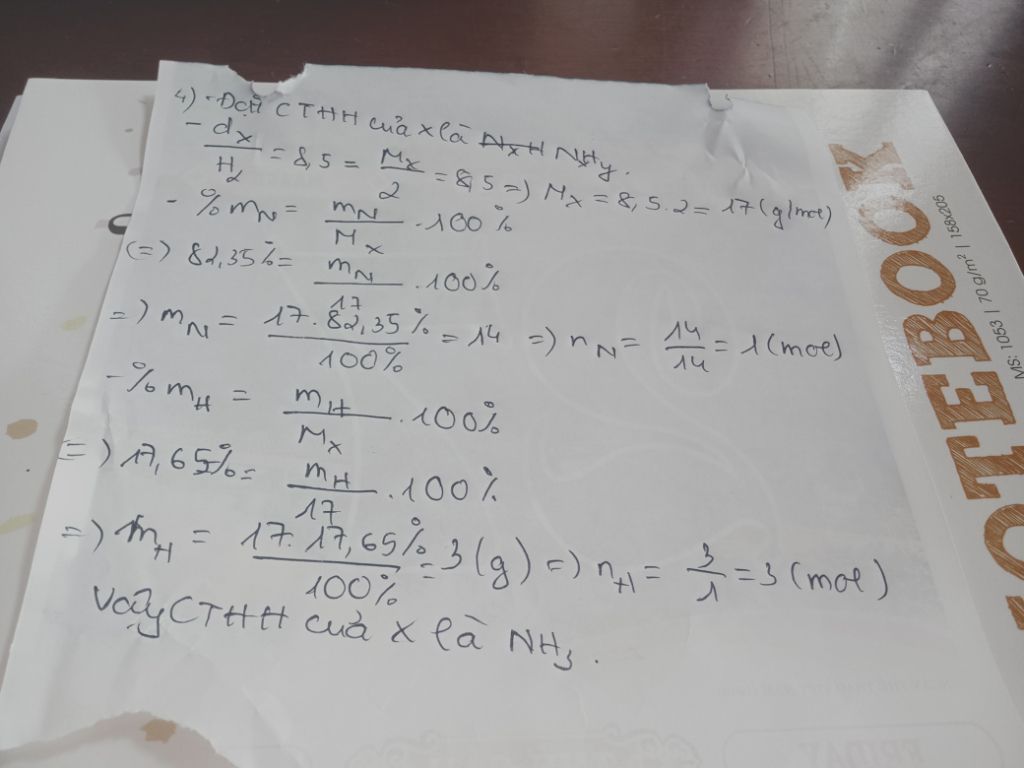 4) - Đặt CTHH của X là NxH NxHy.
- d X/H2 = 8,5 = Mx/2 = 8,5 => Mx = 8,5.2 = 17 (g/mol)
- %mN = mN/Mx . 100%
(=) 82,35% = mN/17 . 100%
=) mN = 17.82,35%/100% = 14 =) nN = 14/14 = 1 (mol)
- %mH = mH/Mx . 100%
(=) 17,65% = mH/17 . 100%
=) mH = 17.17,65%/100% = 3 (g) =) nH = 3/1 = 3 (mol)
Vậy CTHH của X là NH3.
OTEBOOK
MS: 1053 | 70 g/m² | 158x205
FRIDAY